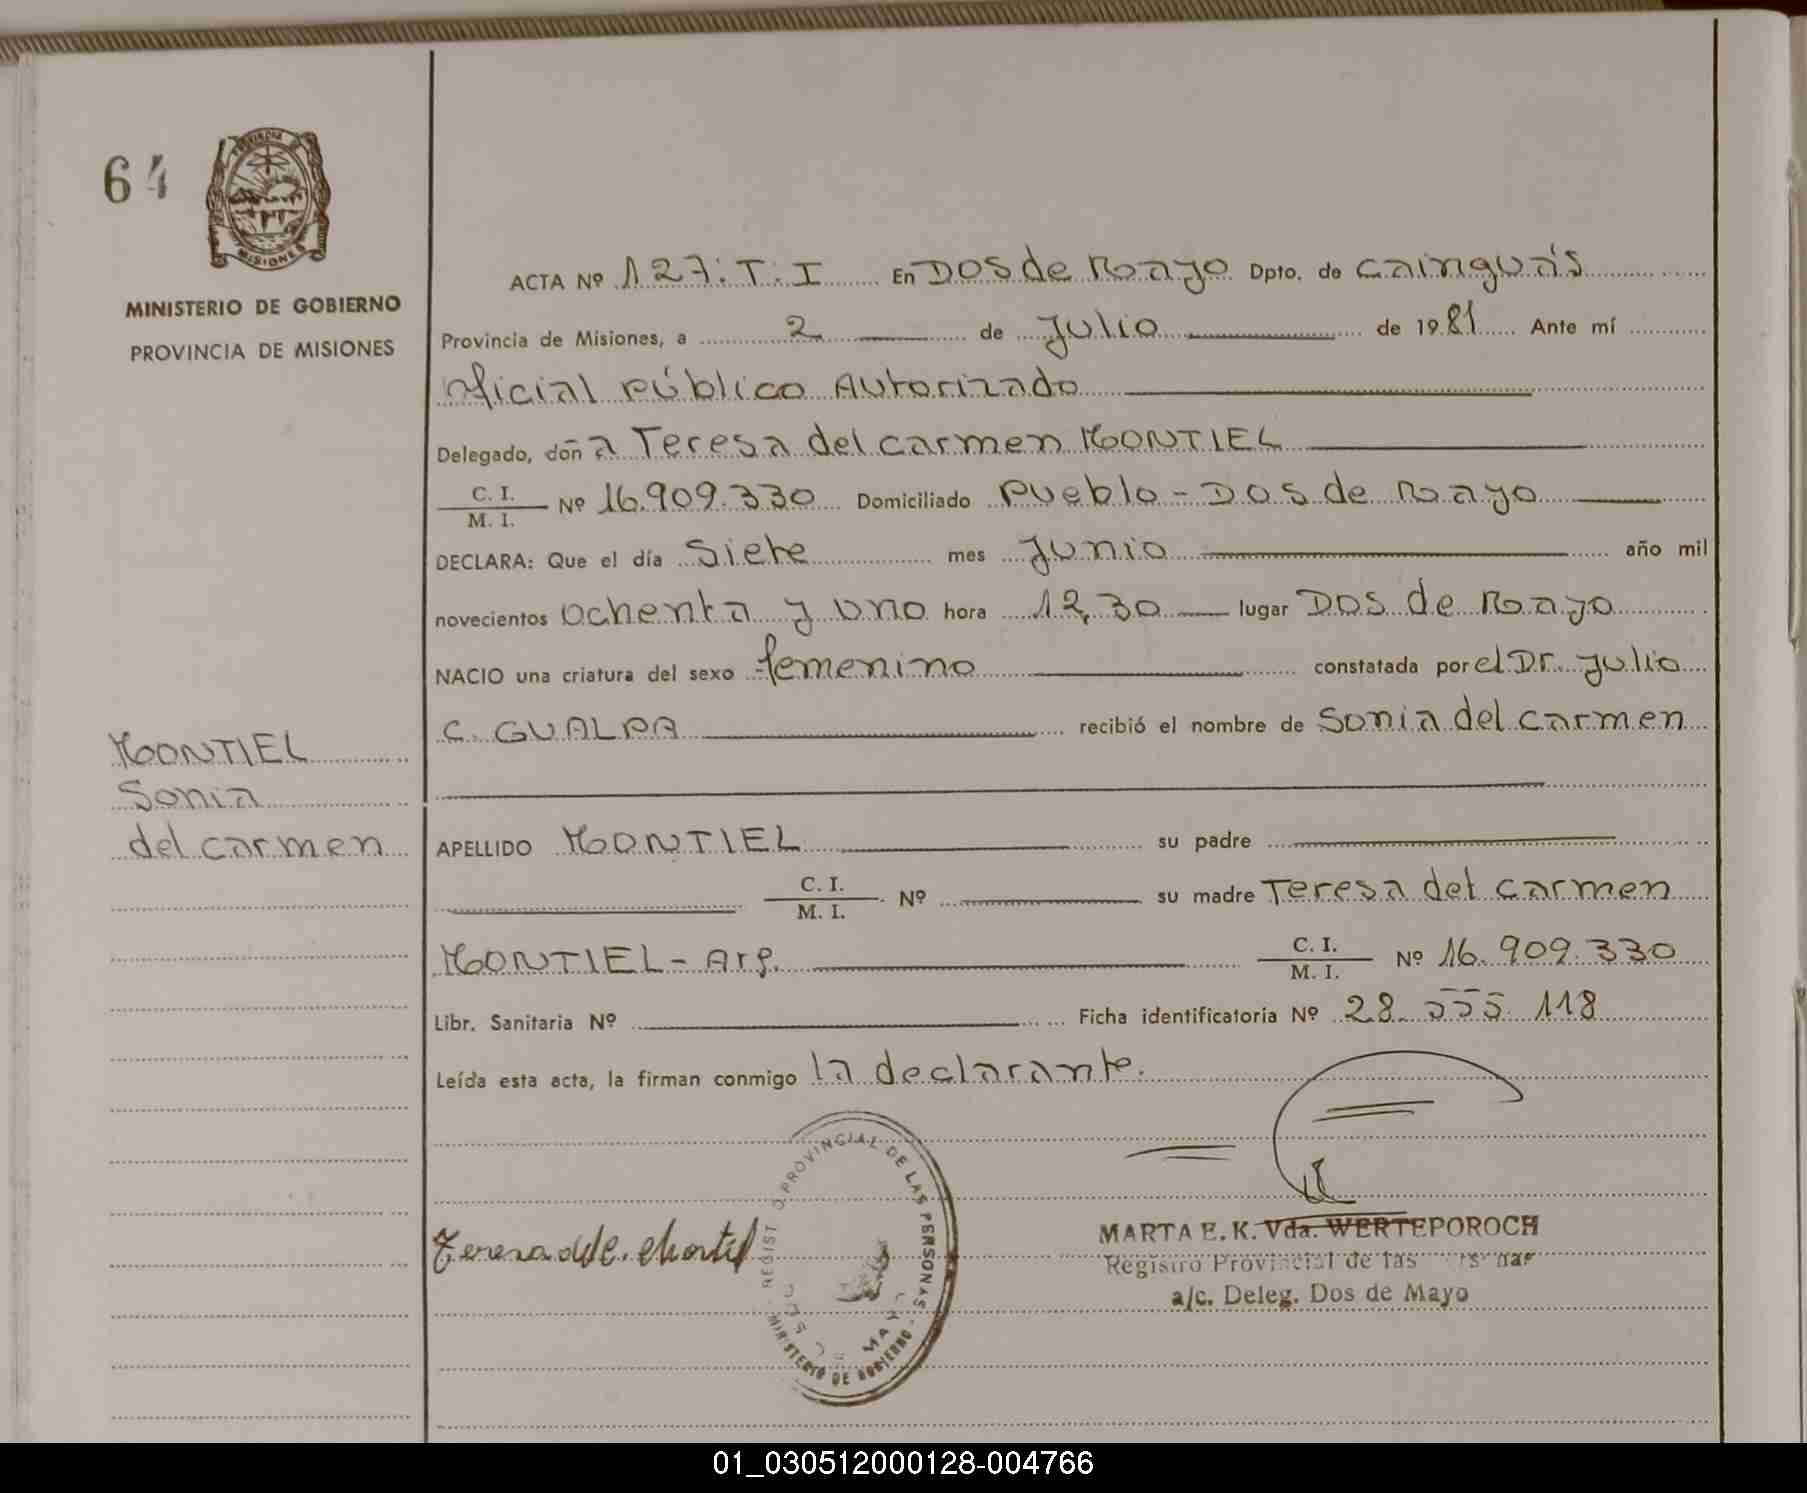 64
PROVINCIA DE
MISIONES
MINISTERIO DE GOBIERNO
PROVINCIA DE MISIONES
ACTA Nº 127. T. I En DOS de Mayo Dpto. de Cainguás
Provincia de Misiones, a 2 de Julio de 1981 Ante mí
Oficial Público Autorizado
Delegado, doña Teresa del Carmen MONTIEL
C. I.
M. I. Nº 16.909.330 Domiciliado Pueblo - DOS de Mayo
DECLARA: Que el día Siete mes Junio año mil
novecientos Ochenta y uno hora 12,30 lugar DOS de Mayo
NACIO una criatura del sexo femenino constatada por el Dr. Julio
C. GUALPA recibió el nombre de Sonia del Carmen
MONTIEL
Sonia
del Carmen
APELLIDO MONTIEL su padre
C. I.
M. I. Nº su madre Teresa del Carmen
MONTIEL - Arg. C. I.
M. I. Nº 16.909.330
Libr. Sanitaria Nº Ficha identificatoria Nº 28.555.118
Leída esta acta, la firman conmigo la declarante.
REGISTRO PROVINCIAL DE LAS PERSONAS
MINISTERIO DE GOBIERNO
MAYO
MARTA E. K. Vda. WERTEPOROCH
Registro Provincial de las
a/c. Deleg. Dos de Mayo
01_030512000128-004766